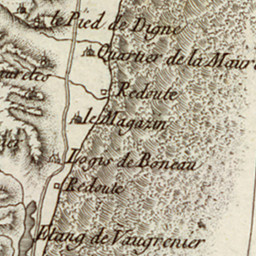 le Pied de Digne
Quartier de la Maure
Redoute
le Magazin
Logis de Boneau
Redoute
Etang de Vaugrenier